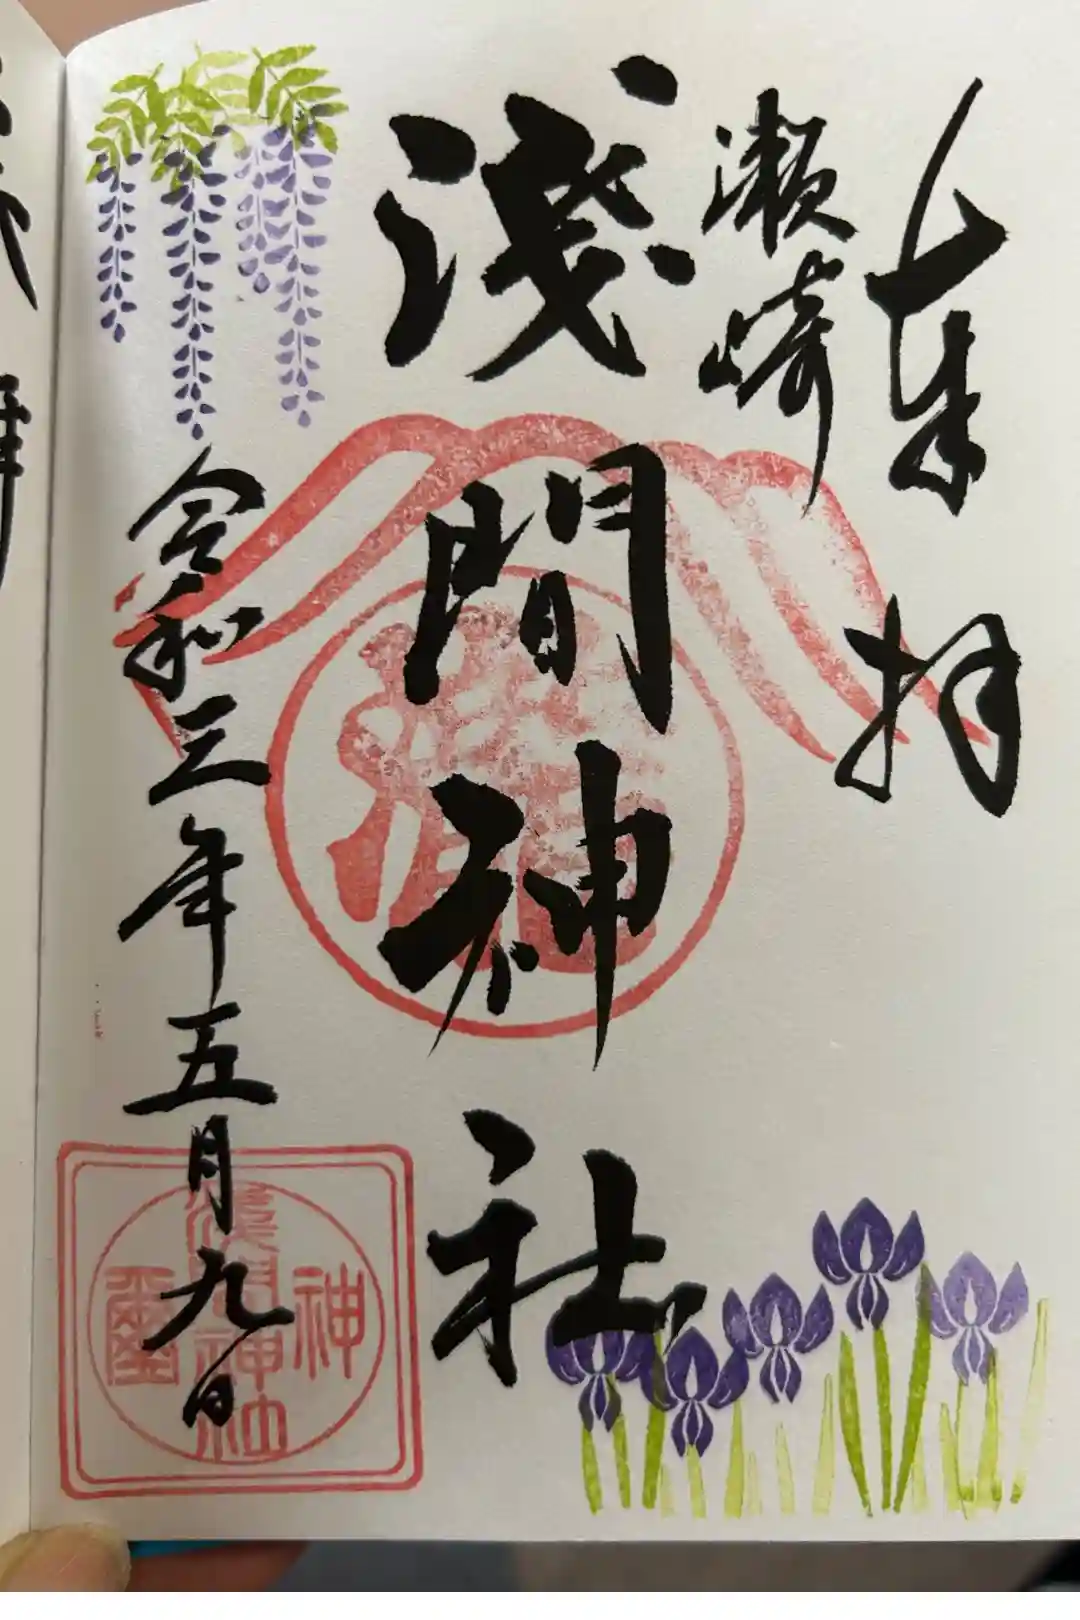 奉拝
瀬崎
淺間神社
令和三年五月九日
淺間神社
神璽